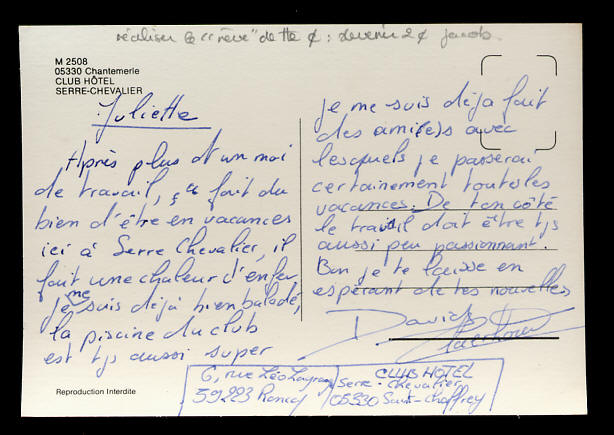 réaliser le "rêve" de tte ♀ : devenir 2♀ Jacob.
M 2508
05330 Chantemerle
CLUB HÔTEL
SERRE-CHEVALIER
Juliette
Après plus d'un moi
de travail, ça fait du
bien d'être en vacances
ici à Serre Chevalier, il
fait une chaleur d'enfer
Je me suis déjà bien baladé,
la piscine du club
est tjs aussi super
Je me suis déja fait
des ami(e)s avec
lesquels je passerai
certainement toutes les
vacances. De ton côté
le travail doit être tjs
aussi peu passionnant.
Bon je te laisse en
espérant de tes nouvelles
David
6, rue Léo Lagrange
59223 Roncq
CLUB HÔTEL
Serre-Chevalier
05330 Saint-Chaffrey
Reproduction Interdite